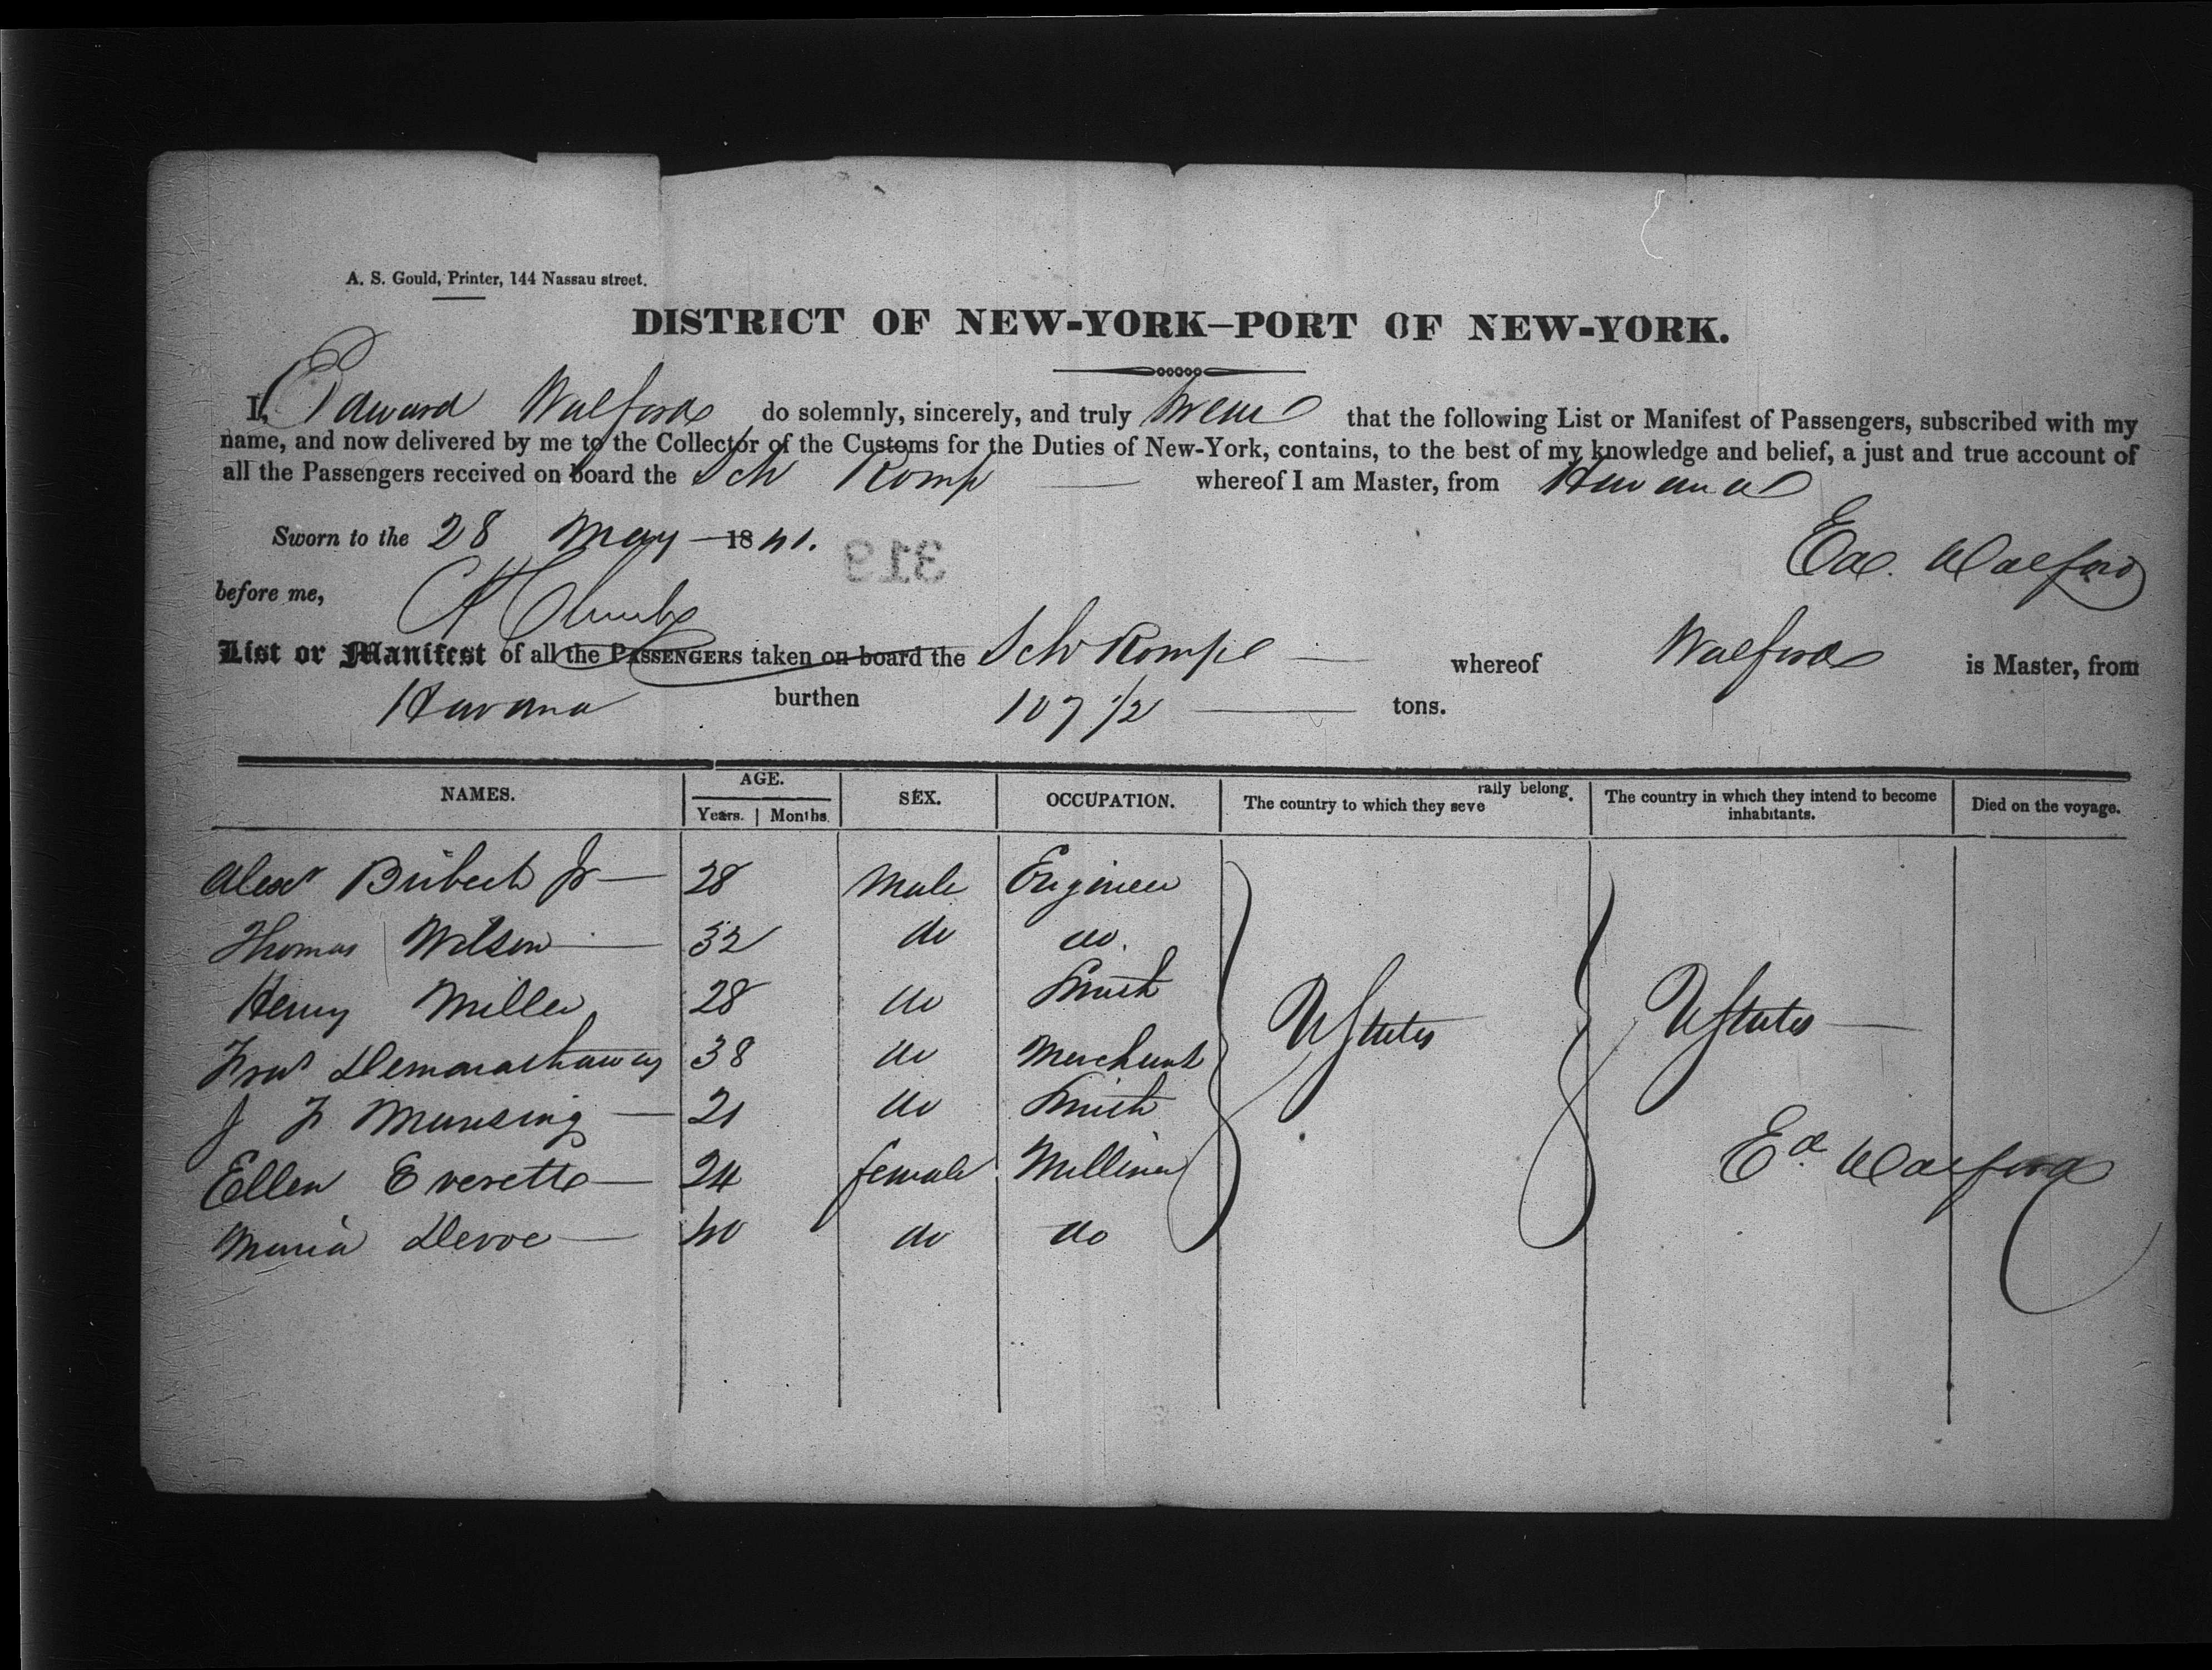 A. S. Gould, Printer, 144 Nassau street.
DISTRICT OF NEW-YORK—PORT OF NEW-YORK.
I, Edward Walford do solemnly, sincerely, and truly swear that the following List or Manifest of Passengers, subscribed with my
name, and now delivered by me to the Collector of the Customs for the Duties of New-York, contains, to the best of my knowledge and belief, a just and true account of
all the Passengers received on board the Sch Romp whereof I am Master, from Havana
Sworn to the 28 May 1841.
319
Ed. Walford
before me,
List or Manifest of all the PASSENGERS taken on board the Sch Romp whereof Walford is Master, from
Havana burthen 107 1/2 tons.
NAMES. AGE. SEX. OCCUPATION. The country to which they severally belong. The country in which they intend to become inhabitants. Died on the voyage.
Years. Months.
Alexr Jr 28 Male Engineer
Thomas Wilson 32 do do.
Henry Miller 28 do Smith
38 do Merchant
J F 21 do Smith
Ellen Everette 24 female Milliner
Maria Devoe 40 do do
UStates UStates
Ed. Walford